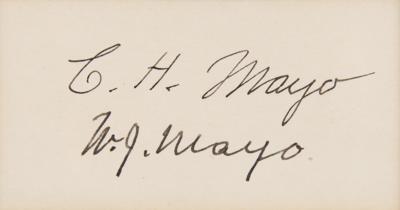 C. H. Mayo
W. J. Mayo.